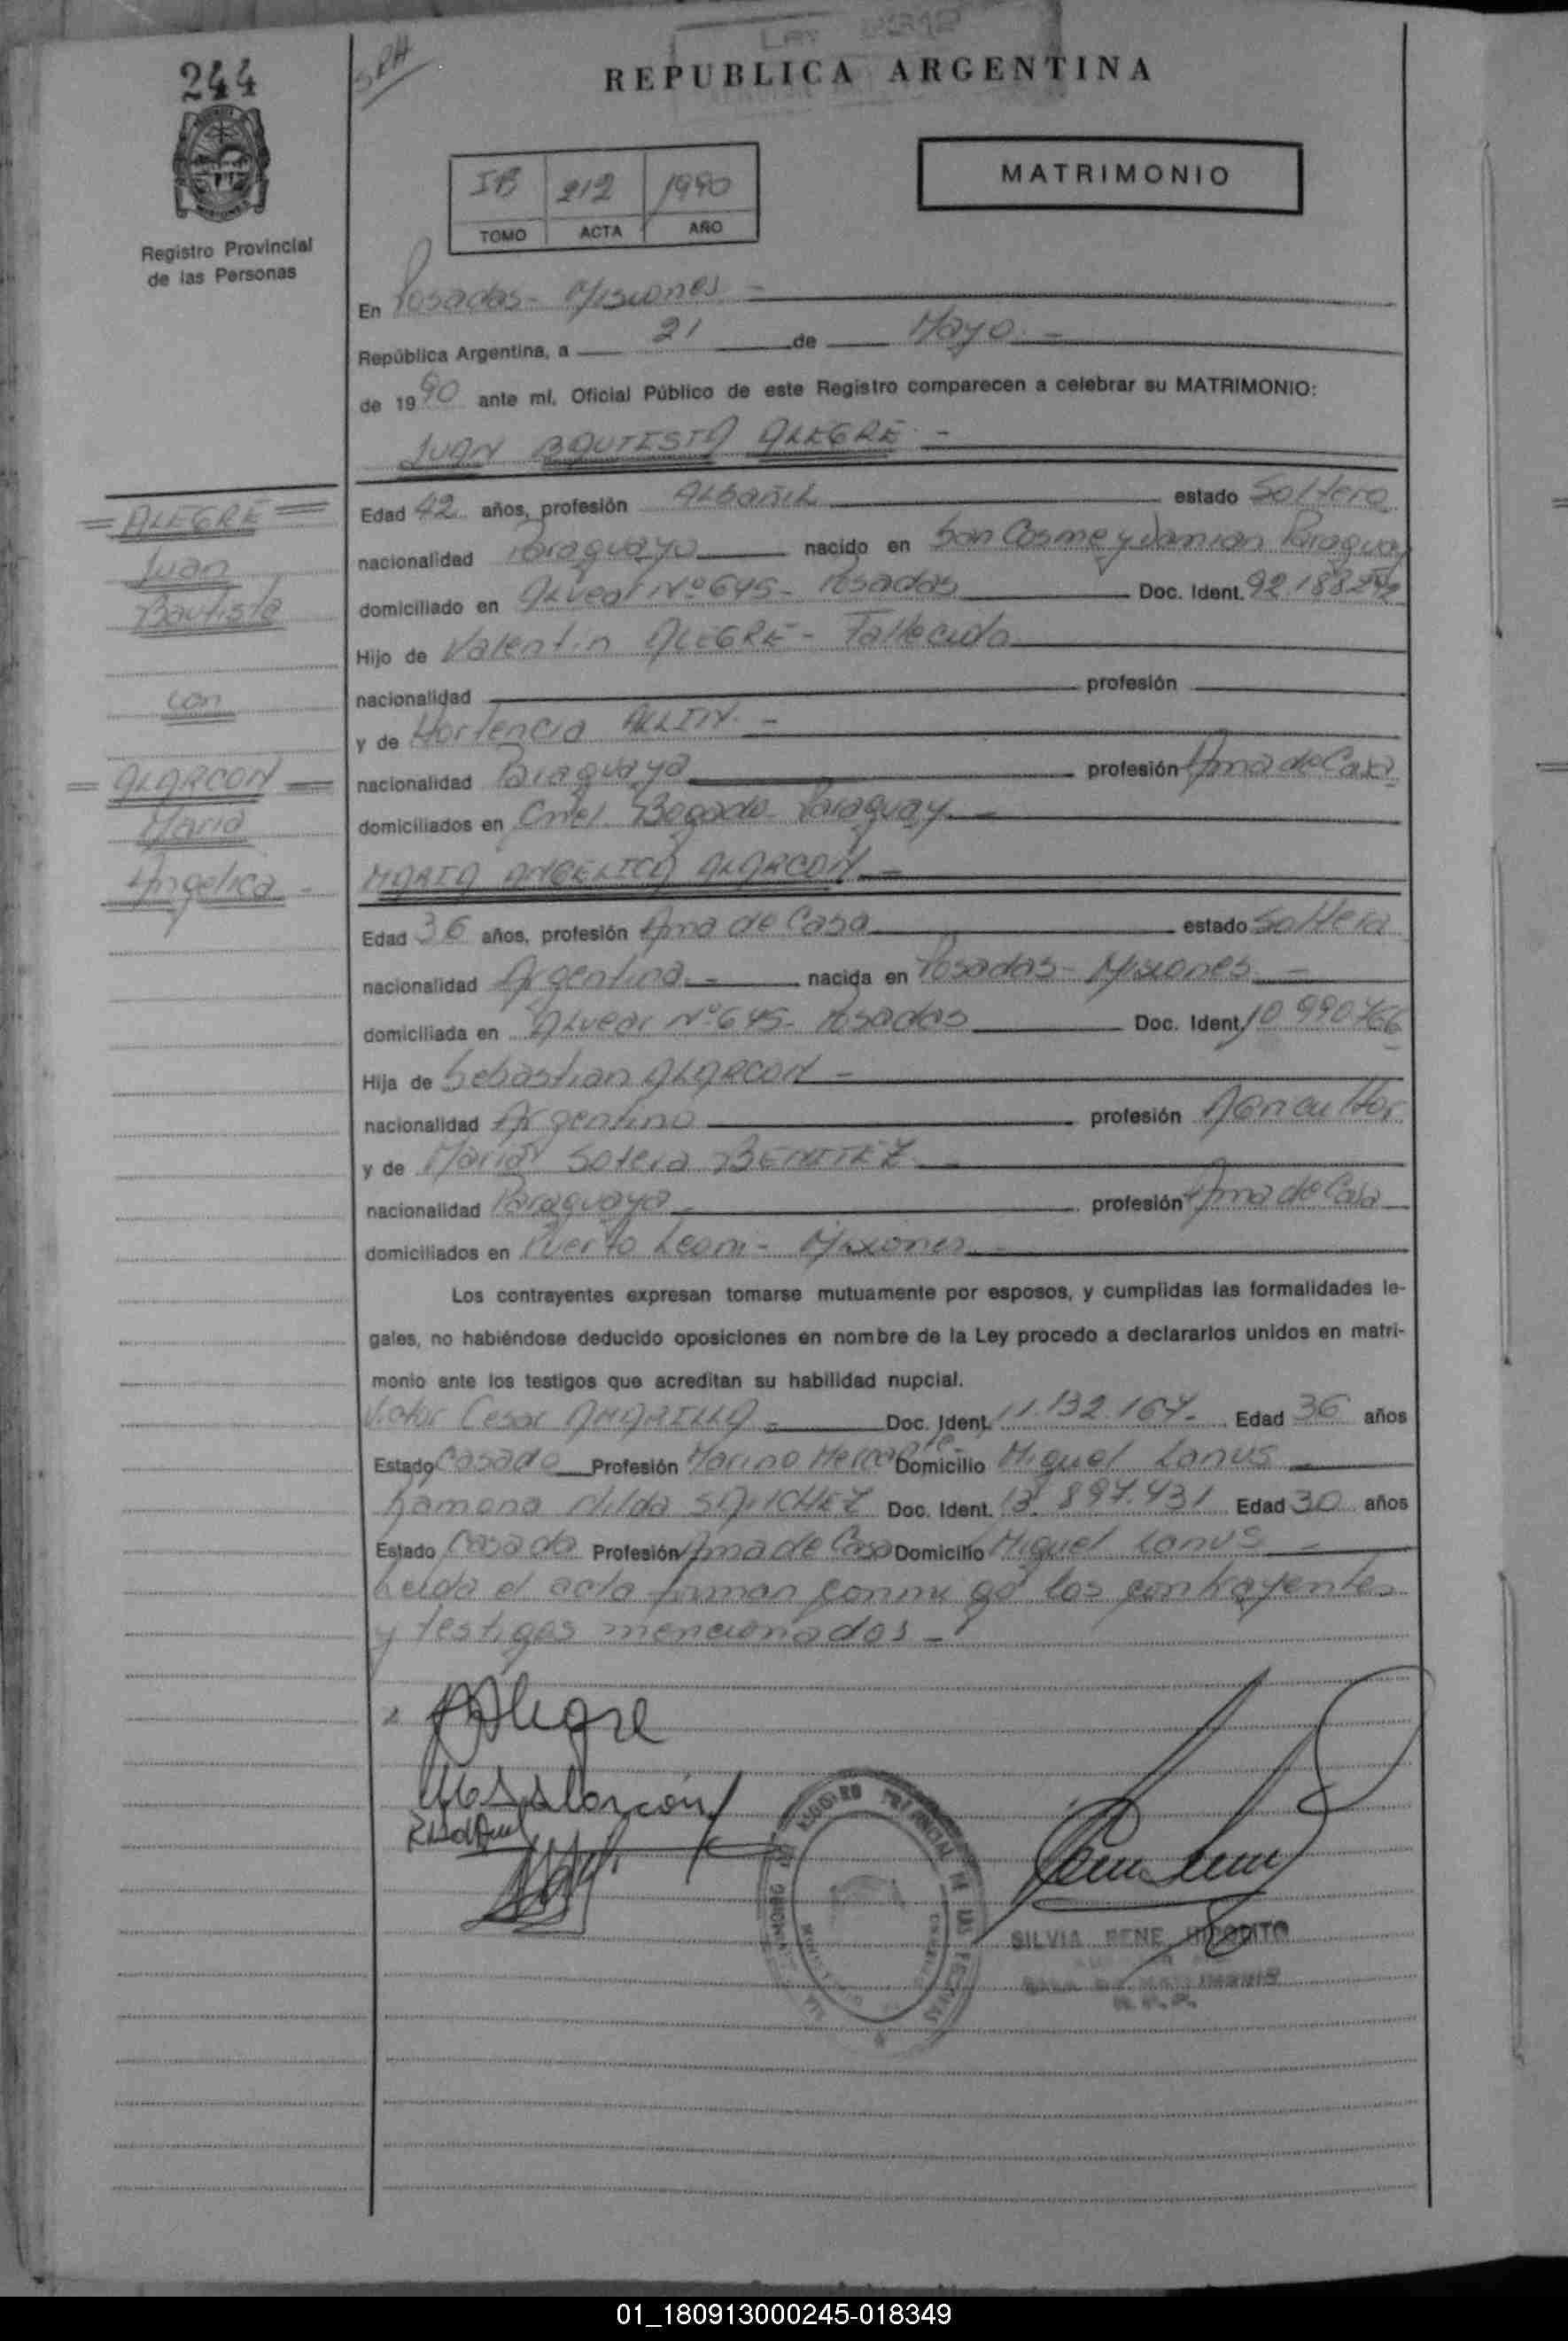 244
SRH
REPUBLICA ARGENTINA
MATRIMONIO
IB 212 1990
TOMO ACTA AÑO
Registro Provincial
de las Personas
En Posadas - Misiones -
República Argentina, a 21 de Mayo -
de 1990 ante mí, Oficial Público de este Registro comparecen a celebrar su MATRIMONIO:
JUAN BAUTISTA ALEGRE -
Edad 42 años, profesión ALBAÑIL estado Soltero
nacionalidad Paraguaya nacido en San Cosme y Damian Paraguay
domiciliado en Alvear Nº 645 - Posadas Doc. Ident.
Hijo de Valentin ALEGRE - Fallecido
nacionalidad profesión
y de Hortencia ALLIN -
nacionalidad Paraguaya profesión Ama de Casa
domiciliados en Cnel Bogado - Paraguay -
MARIA ANGELICA ALARCON -
Edad 36 años, profesión Ama de Casa estado Soltera
nacionalidad Argentina - nacida en Posadas - Misiones -
domiciliada en Alvear Nº 645 - Posadas Doc. Ident. 10.990.766
Hija de Sebastian ALARCON -
nacionalidad Argentino profesión Agricultor
y de Maria Sotera BENITEZ -
nacionalidad Paraguaya profesión Ama de Casa
domiciliados en Puerto Leoni - Misiones
Los contrayentes expresan tomarse mutuamente por esposos, y cumplidas las formalidades le-
gales, no habiéndose deducido oposiciones en nombre de la Ley procedo a declararlos unidos en matri-
monio ante los testigos que acreditan su habilidad nupcial.
Victor Cesar AMARILLA - Doc. Ident. 11.132.167 - Edad 36 años
Estado Casado Profesión Marino Mercante Domicilio Miguel Lanus
Ramona Nilda SANCHEZ Doc. Ident. 13.897.431 Edad 30 años
Estado Casada Profesión Ama de Casa Domicilio Miguel Lanus -
Leida el acta firman conmigo los contrayentes
y testigos mencionados -
= ALEGRE =
Juan
Bautista
con
= ALARCON =
Maria
Angelica -
Alegre
Alarcón
SILVIA RENE
R. P. P.
01_180913000245-018349